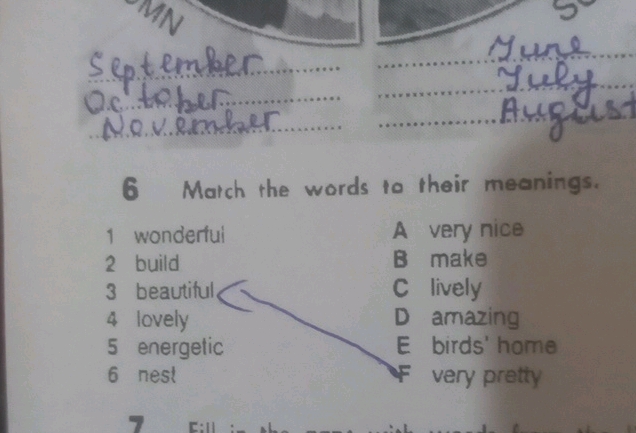 UMN
September
October
November
June
July
August
6 Match the words to their meanings.
1 wonderful A very nice
2 build B make
3 beautiful C lively
4 lovely D amazing
5 energetic E birds' home
6 nest F very pretty
7 Fill in the gaps with words from the